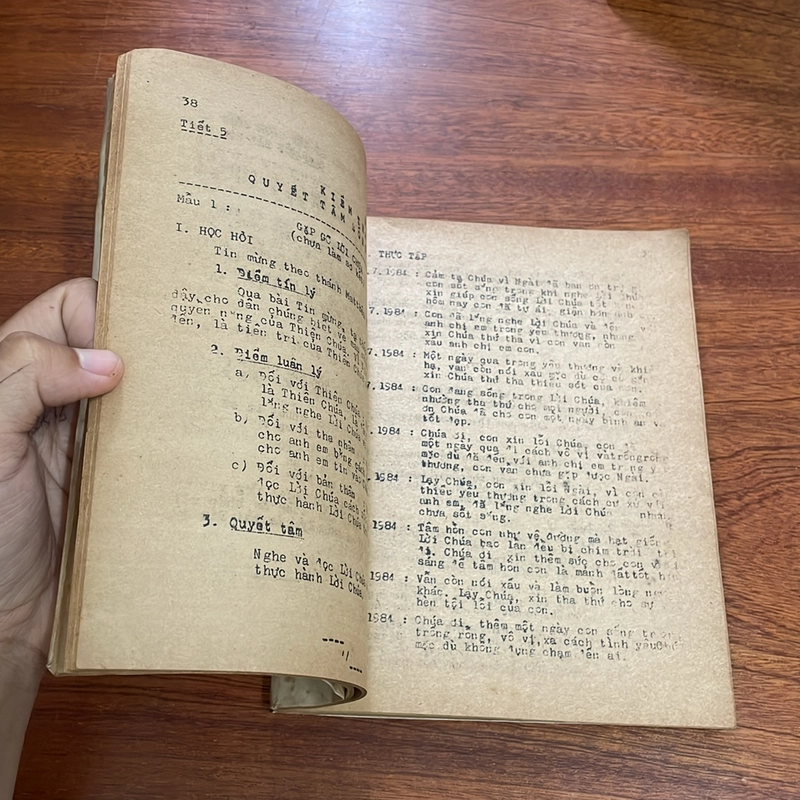 38
Tiết 5
KIỂM
QUYẾT TÂM
Mẫu 1 :
GẶP GỠ LỜI
(chưa làm
I. HỌC HỎI
Tin mừng theo thánh
1. Điểm tín lý
Qua bài Tin mừng, ta
đây cho dân chúng biết về
quyền năng của Thiên Chúa,
đến, là tiên tri của Thiên
2. Điểm luân lý
a, Đối với Thiên
là Thiên Chúa, là
lắng nghe Lời Chúa
b) Đối với tha nhân
cho anh em bằng
cho anh em tin vào
c) Đối với bản thân
đọc Lời Chúa cách
thực hành Lời Chúa
3. Quyết tâm
Nghe và đọc Lời
thực hành Lời Chúa
THỰC TẬP
7.1984 : Cảm tạ Chúa vì Ngài đã ban ơn
con sốt sắng trong khi nghe lời
xin giúp con sống Lời Chúa tốt
hôm nay con đã tự ái, giận hờn anh
7.1984 : Con đã lắng nghe Lời Chúa và đến
anh chị em trong yêu thương, nhưng
xin Chúa thứ tha vì con vẫn còn
xấu anh chị em con.
7.1984 : Một ngày qua trong yêu thương và
hạ, vẫn còn nói xấu mặc dù
xin Chúa thứ tha thiếu sót của con.
7.1984 : Con đang sống trong lời Chúa, khiêm
nhường tha thứ cho một người, cảm
ơn Chúa đã cho con một ngày bình an và
tốt đẹp.
.1984 : Chúa ơi, con xin lỗi Chúa, con đã
một ngày qua đi cách vô vị vàtrốngrỗng
mặc dù đã đến với anh chị em trong
thương, con vẫn chưa gặp được Ngài.
.1984 : Lạy Chúa, con xin lỗi Ngài, vì con
thiếu yêu thương trong cách cư xử với
anh em, đã lắng nghe lời Chúa nhưng
chưa sốt sắng.
1984 : Tâm hồn con như vệ đường mà hạt giống
Lời Chúa bao lần đều bị chim trời
đi. Chúa ơi xin thêm sức cho con
sàng để tâm hồn con là mảnh đấttốt
1984 : Vẫn còn nói xấu và làm buồn lòng
khác. Lạy Chúa, xin tha thứ cho sự
hèn tội lỗi của con.
1984 : Chúa ơi, thêm một ngày con sống
trống rỗng, vô vị,xa cách tình yêu
mặc dù không đụng chạm đến ai.